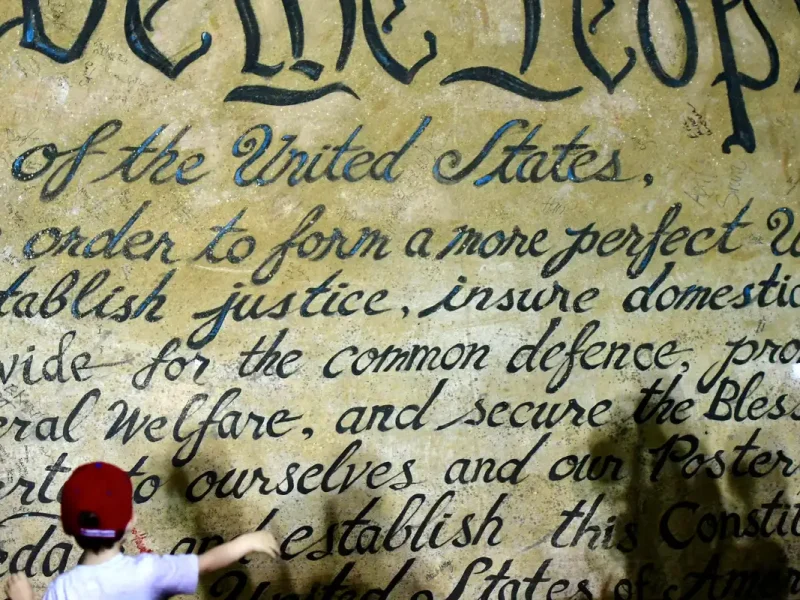 We the Peop
of the United States,
order to form a more perfect U
tablish justice, insure domestic
vide for the common defence, pro
eral Welfare, and secure the Bless
erty to ourselves and our Poster
and establish this Constit
United States of Amer